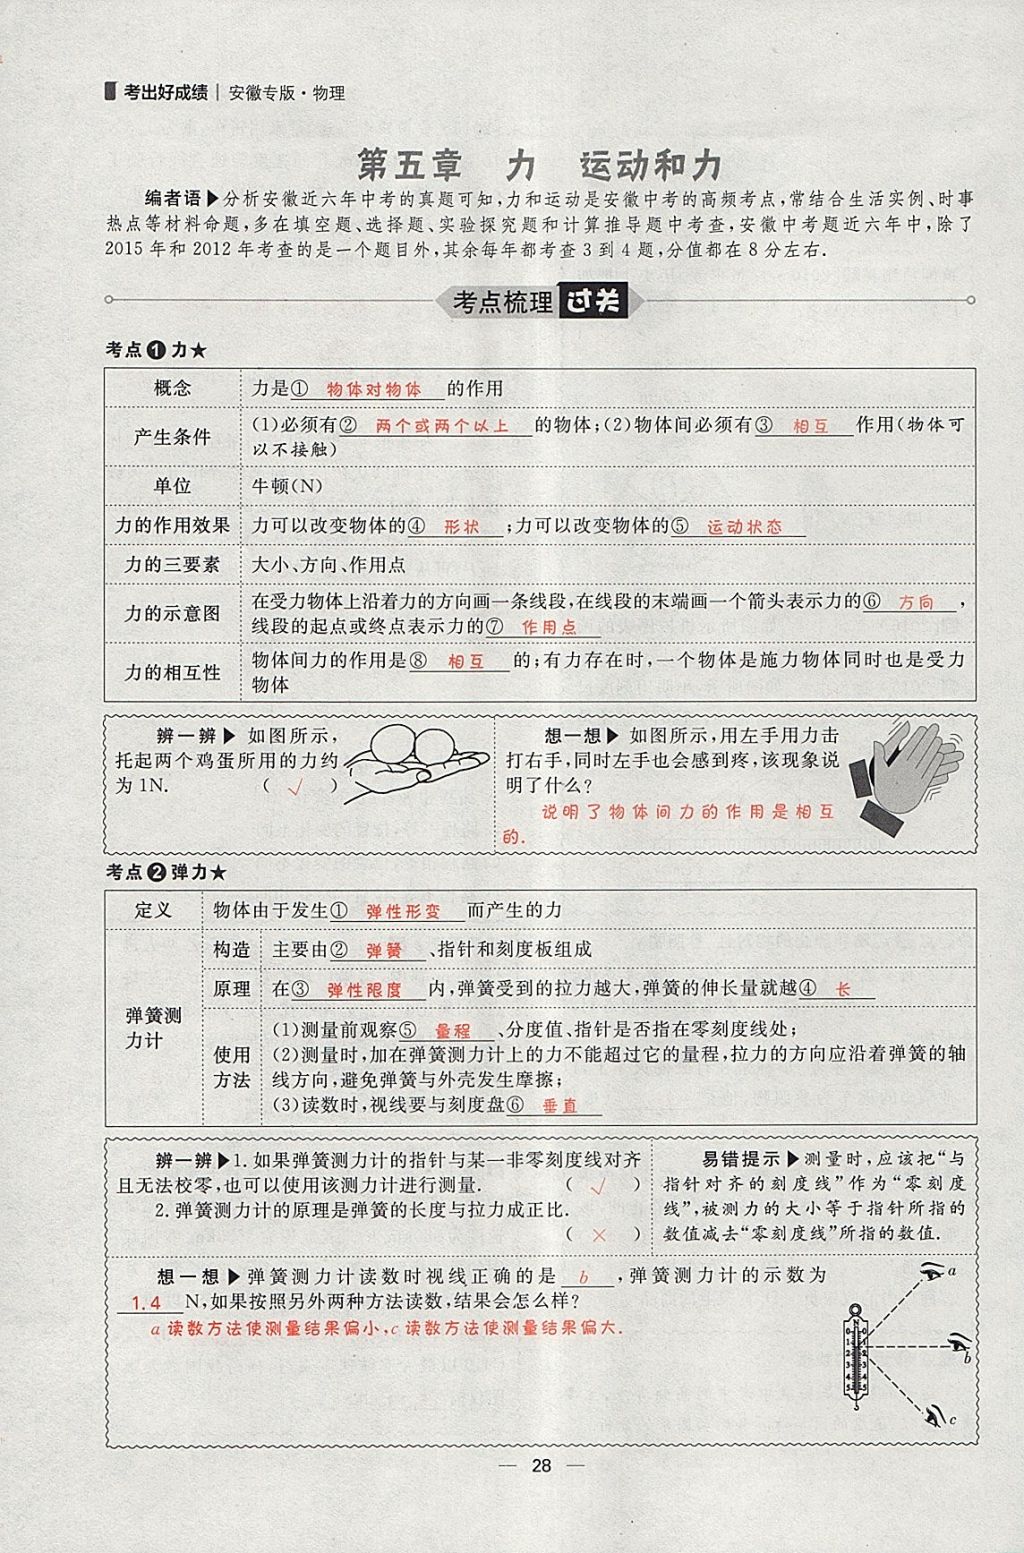 考出好成绩 | 安徽专版·物理
第五章 力 运动和力
编者语▶分析安徽近六年中考的真题可知,力和运动是安徽中考的高频考点,常结合生活实例、时事
热点等材料命题,多在填空题、选择题、实验探究题和计算推导题中考查,安徽中考题近六年中,除了
2015年和2012年考查的是一个题目外,其余每年都考查3到4题,分值都在8分左右.
考点梳理 过关
考点❶力★
概念 力是① 物体对物体 的作用
产生条件 (1)必须有② 两个或两个以上 的物体;(2)物体间必须有③ 相互 作用(物体可
以不接触)
单位 牛顿(N)
力的作用效果 力可以改变物体的④ 形状 ;力可以改变物体的⑤ 运动状态
力的三要素 大小、方向、作用点
力的示意图 在受力物体上沿着力的方向画一条线段,在线段的末端画一个箭头表示力的⑥ 方向 ,
线段的起点或终点表示力的⑦ 作用点
力的相互性 物体间力的作用是⑧ 相互 的;有力存在时,一个物体是施力物体同时也是受力
物体
辨一辨▶ 如图所示,
托起两个鸡蛋所用的力约
为1N. ( √ )
想一想▶ 如图所示,用左手用力击
打右手,同时左手也会感到疼,该现象说
明了什么?
说明了物体间力的作用是相互
的.
考点❷弹力★
定义 物体由于发生① 弹性形变 而产生的力
弹簧测
力计
构造 主要由② 弹簧 、指针和刻度板组成
原理 在③ 弹性限度 内,弹簧受到的拉力越大,弹簧的伸长量就越④ 长
使用
方法
(1)测量前观察⑤ 量程 、分度值、指针是否指在零刻度线处;
(2)测量时,加在弹簧测力计上的力不能超过它的量程,拉力的方向应沿着弹簧的轴
线方向,避免弹簧与外壳发生摩擦;
(3)读数时,视线要与刻度盘⑥ 垂直
辨一辨▶1.如果弹簧测力计的指针与某一非零刻度线对齐
且无法校零,也可以使用该测力计进行测量. ( √ )
2.弹簧测力计的原理是弹簧的长度与拉力成正比.
( × )
易错提示▶测量时,应该把“与
指针对齐的刻度线”作为“零刻度
线”,被测力的大小等于指针所指的
数值减去“零刻度线”所指的数值.
想一想▶弹簧测力计读数时视线正确的是 b ,弹簧测力计的示数为
1.4 N,如果按照另外两种方法读数,结果会怎么样?
a读数方法使测量结果偏小,c读数方法使测量结果偏大.
a
N
0 0
1 1
2 2
3 3
4 4
5 5
b
c
— 28 —